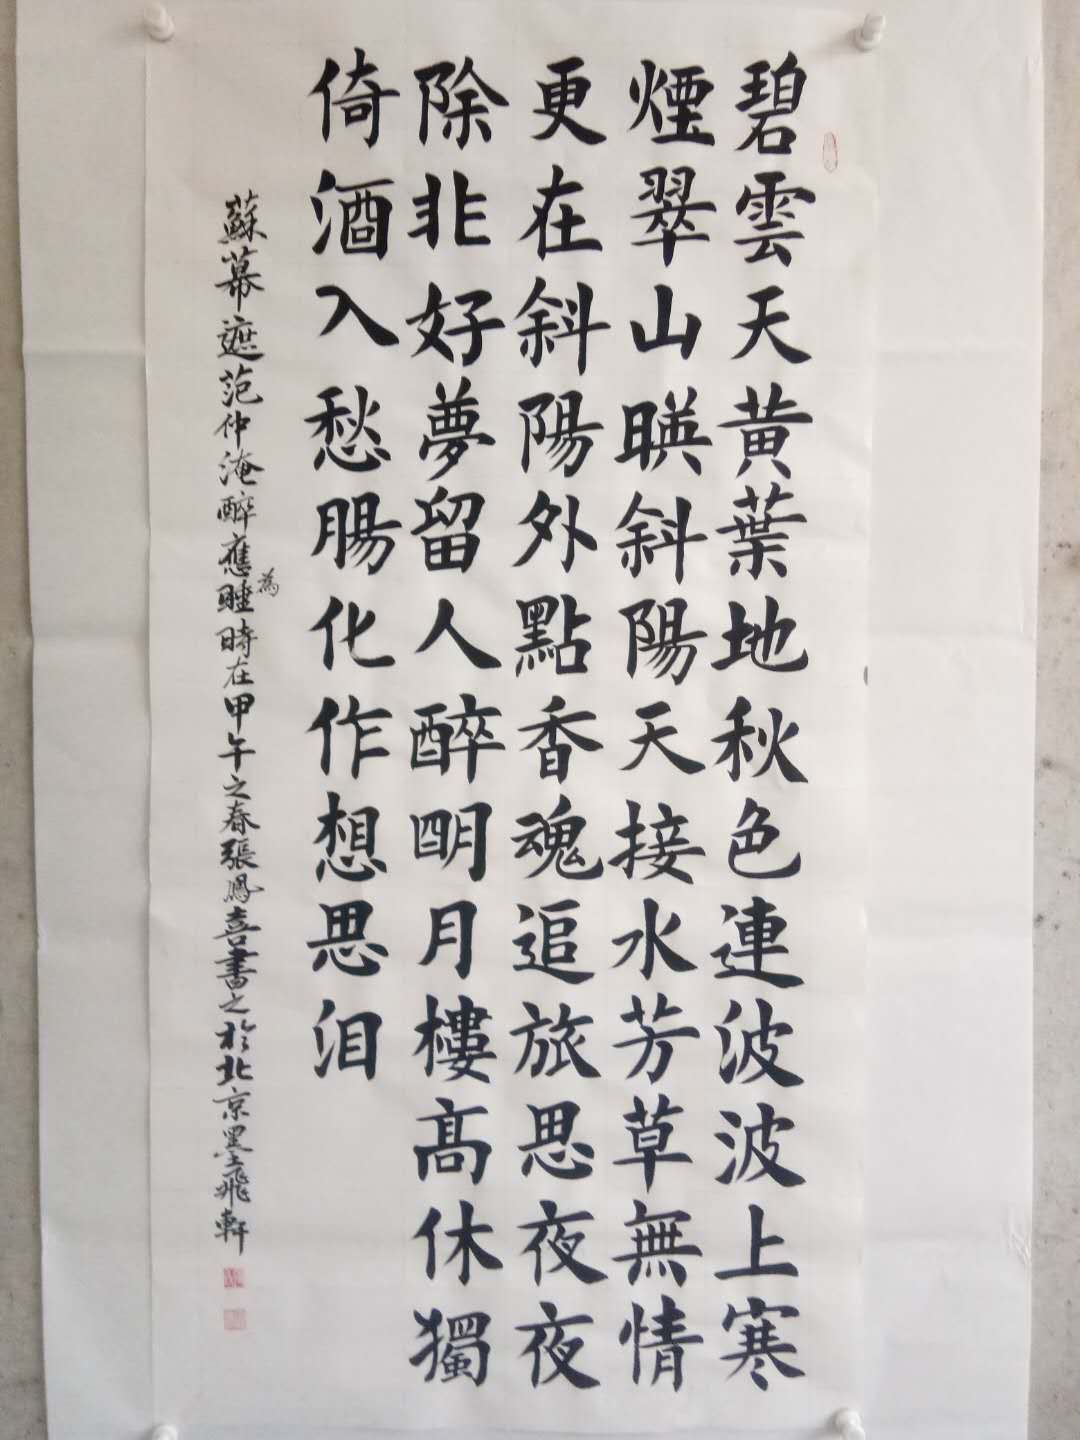 碧雲天黄葉地秋色連波波上寒
煙翠山暎斜陽天接水芳草無情
更在斜陽外點香魂追旅思夜夜
除非好夢留人醉明月樓髙休獨
倚酒入愁腸化作想思泪
蘇幕遮范仲淹醉應為睡時在甲午之春張鳳喜書之於北京墨飛軒